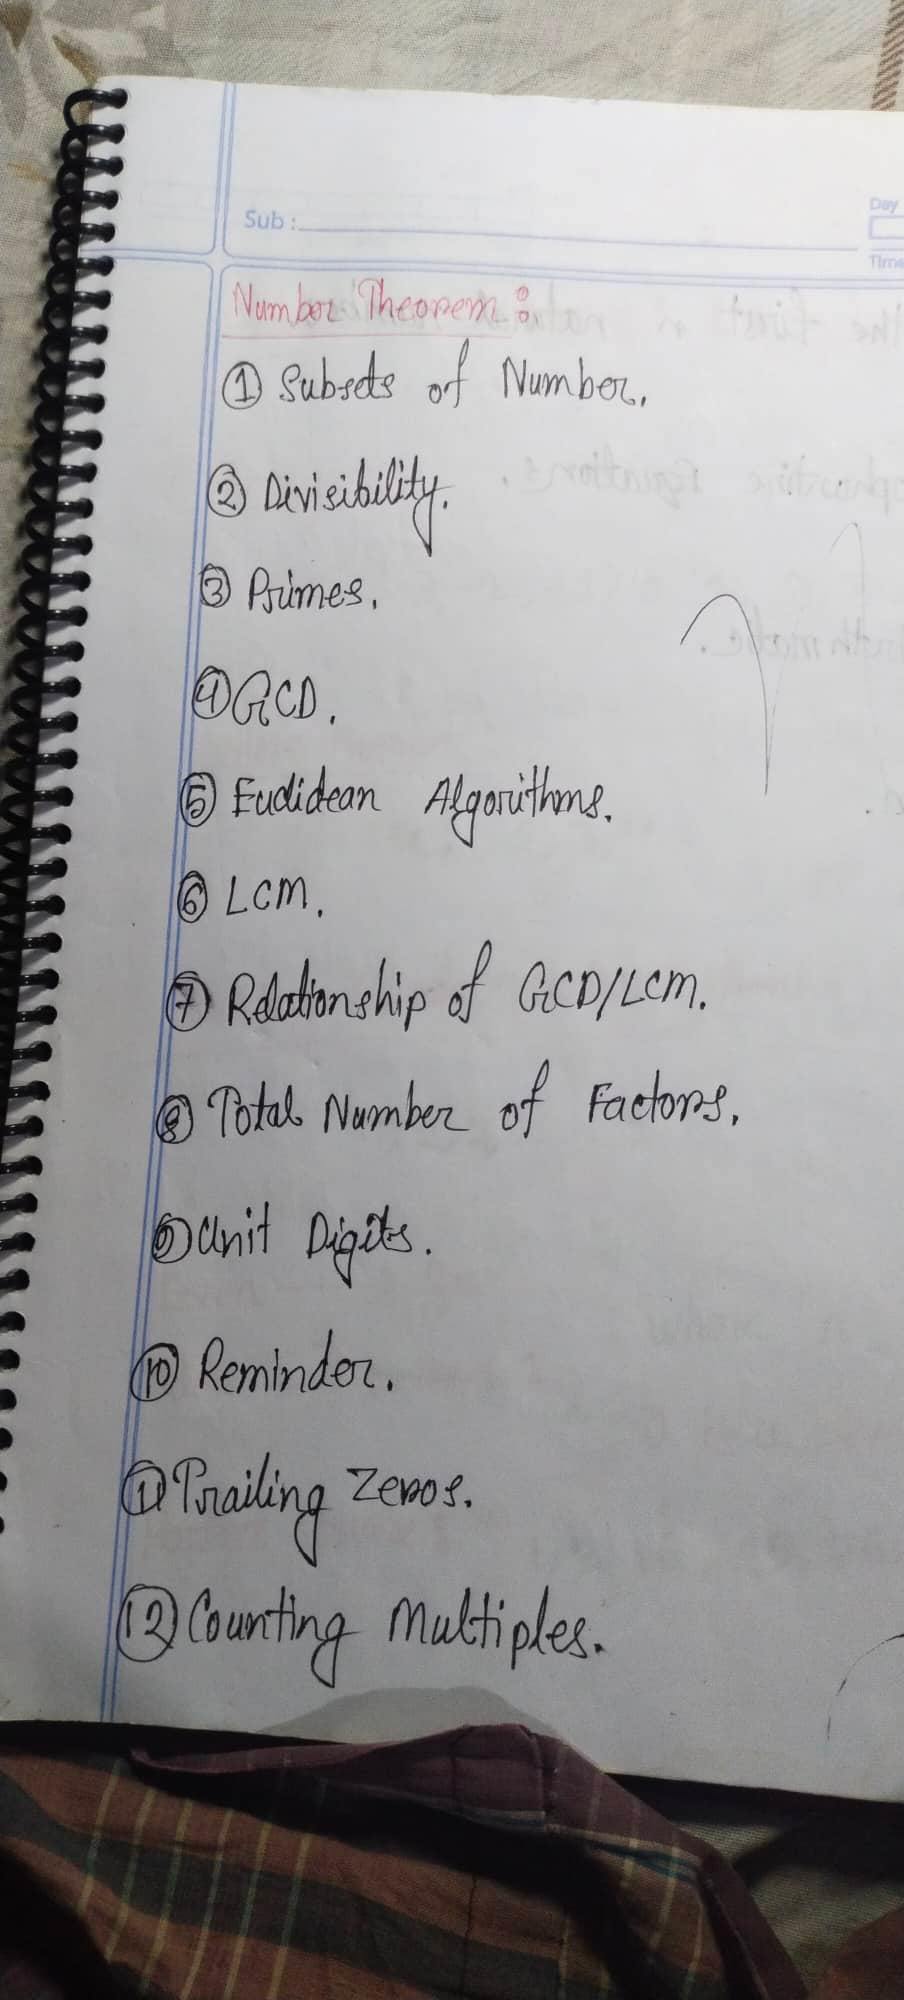 Sub :
Day
Time
Number Theorem :
① Subsets of Number.
② Divisibility.
③ Primes.
④ GCD.
⑤ Euclidean Algorithms.
⑥ LCM.
⑦ Relationship of GCD/LCM.
⑧ Total Number of Factors.
⑨ Unit Digits.
⑩ Reminder.
⑪ Trailing Zeros.
⑫ Counting Multiples.